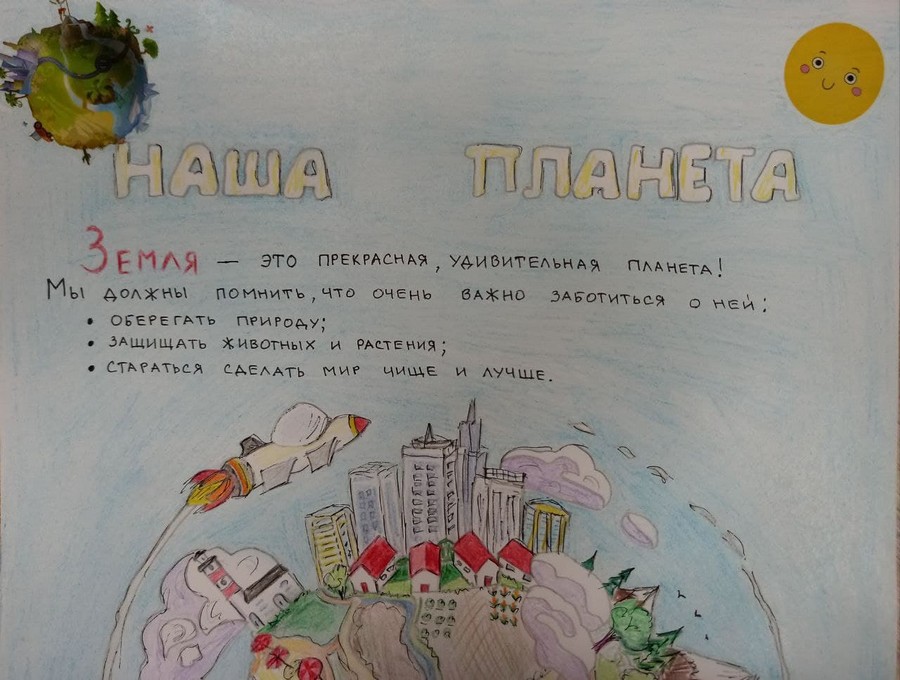 НАША ПЛАНЕТА
Земля — это прекрасная, удивительная планета!
Мы должны помнить, что очень важно заботиться о ней:
• оберегать природу;
• защищать животных и растения;
• стараться сделать мир чище и лучше.